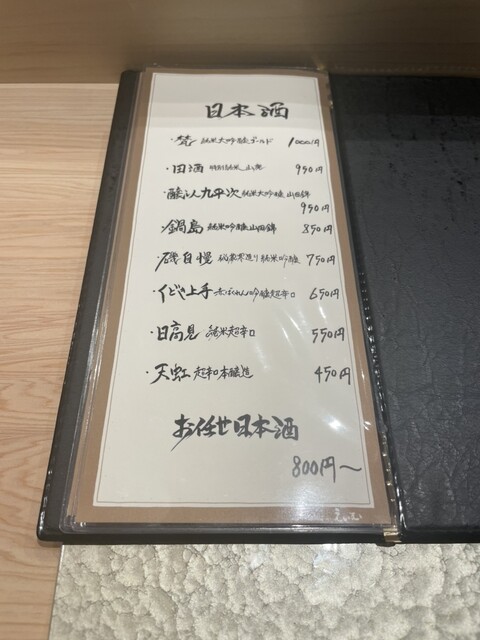 日本酒
・梵 純米大吟醸ゴールド 1000円
・田酒 特別純米 山廃 950円
・醸し人九平次 純米大吟醸 山田錦
950円
・鍋島 純米吟醸 山田錦 850円
・磯自慢 純米吟醸 750円
・くどき上手 ばくれん吟醸超辛口 650円
・日高見 純米超辛口 550円
・天虹 超辛口本醸造 450円
お任せ日本酒
800円〜